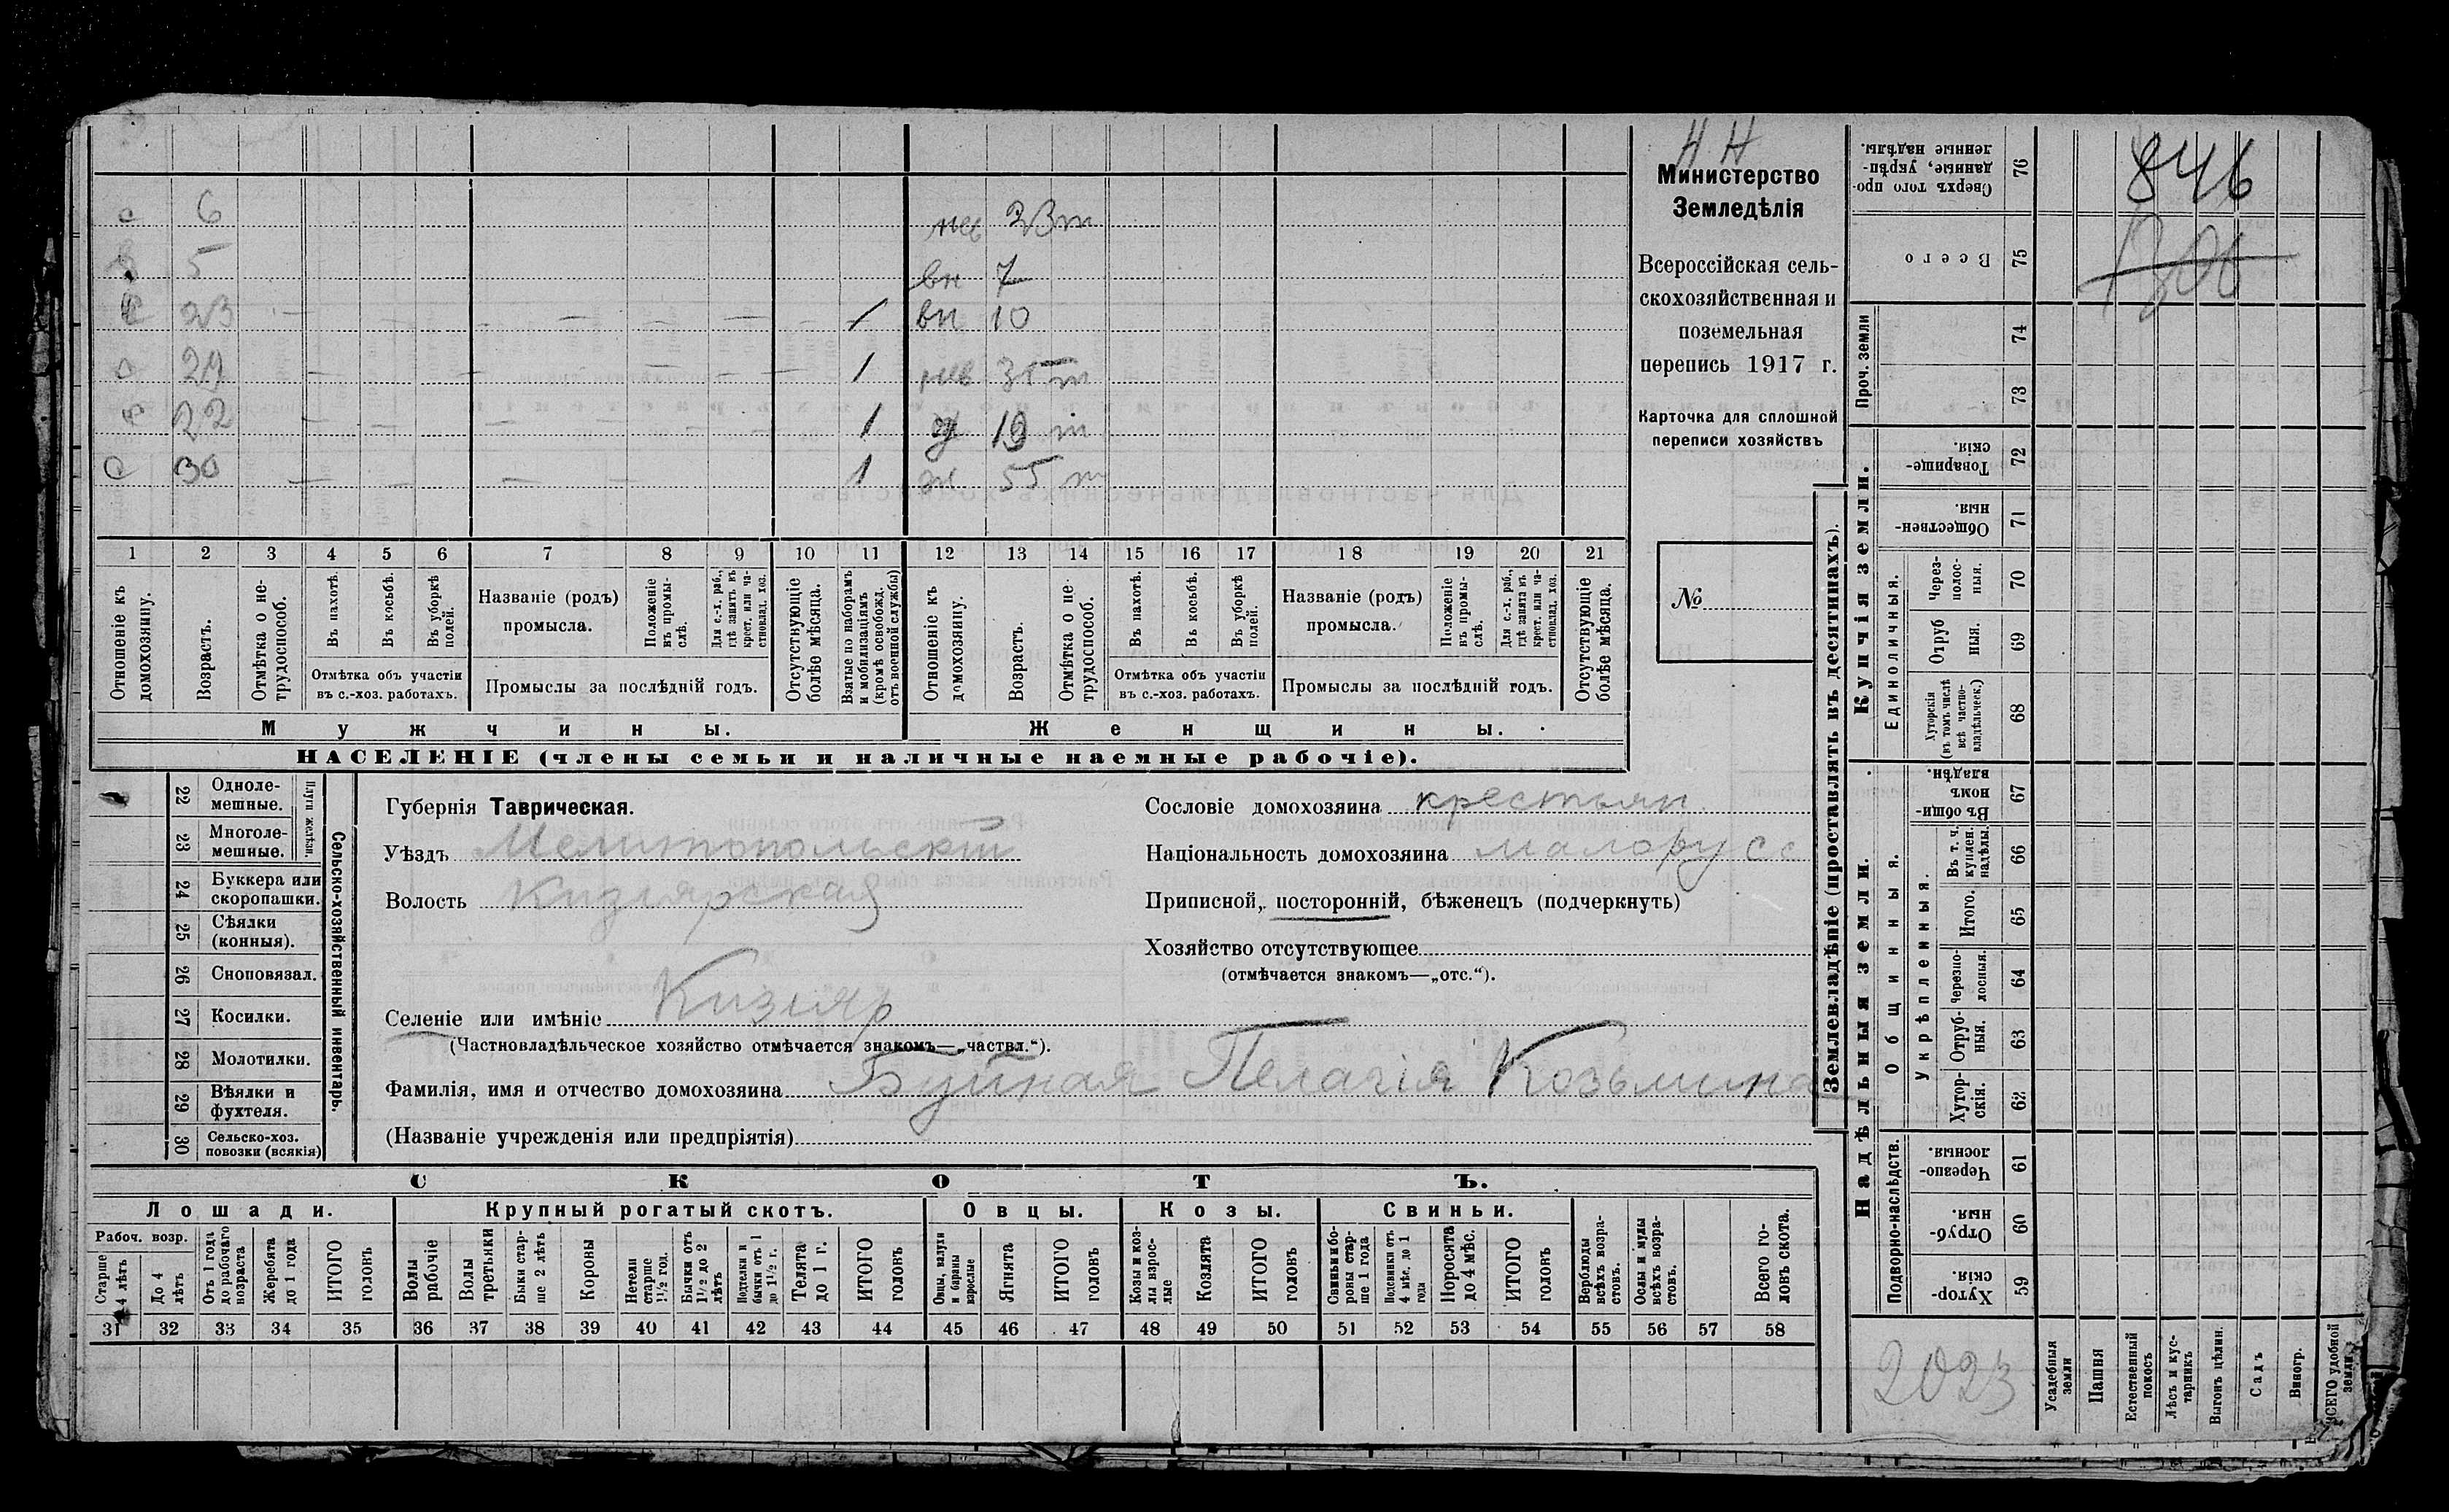 Н Н
Министерство
Земледѣлія
Всероссійская сель-
скохозяйственная и
поземельная
перепись 1917 г.
Карточка для сплошной
переписи хозяйствъ
№
846
с 6
5
23 — 1
29 — 1
22 — 1
с 30 — 1
нев 23 т
вн 7
вн 10
нев 35 т
19 т
ж 55 т
1 2 3 4 5 6 7 8 9 10 11 12 13 14 15 16 17 18 19 20 21
Отношеніе къ домохозяину.
Возрастъ.
Отмѣтка о не-
трудоспособ.
Въ пахотѣ.
Въ косьбѣ.
Въ уборкѣ
полей.
Отмѣтка объ участіи
въ с.-хоз. работахъ.
Названіе (родъ)
промысла.
Положеніе
въ промы-
слѣ.
Для с.-х. раб.,
гдѣ занятъ въ
крест. или ча-
стновлад. хоз.
Промыслы за послѣдній годъ.
Отсутствующіе
болѣе мѣсяца.
Взятые по наборамъ
и мобилизаціямъ
(кромѣ освобожд.
отъ военной службы)
Отношеніе къ
домохозяину.
Возрастъ.
Отмѣтка о не-
трудоспособ.
Въ пахотѣ.
Въ косьбѣ.
Въ уборкѣ
полей.
Отмѣтка объ участіи
въ с.-хоз. работахъ.
Названіе (родъ)
промысла.
Положеніе
въ промы-
слѣ.
Для с.-х. раб.,
гдѣ занята въ
крест. или ча-
стновлад. хоз.
Промыслы за послѣдній годъ.
Отсутствующіе
болѣе мѣсяца.
Мужчины.
Женщины.
НАСЕЛЕНІЕ (члены семьи и наличные наемные рабочіе).
22 Одноле-
мешные.
23 Многоле-
мешные.
Плуги желѣзн.
24 Буккера или
скоропашки.
25 Сѣялки
(конныя).
26 Сноповязал.
27 Косилки.
28 Молотилки.
29 Вѣялки и
фухтеля.
30 Сельско-хоз.
повозки (всякія)
Сельско-хозяйственный инвентарь.
Губернія Таврическая.
Уѣздъ Мелитопольскій
Волость Кизіярская
Селеніе или имѣніе Кизіяр
(Частновладѣльческое хозяйство отмѣчается знакомъ—„частвл.“).
Фамилія, имя и отчество домохозяина Буйная Пелагія Козьмина
(Названіе учрежденія или предпріятія)
Сословіе домохозяина крестьян.
Національность домохозяина малорусс
Приписной, посторонній, бѣженецъ (подчеркнуть)
Хозяйство отсутствующее
(отмѣчается знакомъ—„отс.“).
СКОТЪ.
Лошади.
Крупный рогатый скотъ.
Овцы.
Козы.
Свиньи.
Рабоч. возр.
Старше
4 лѣтъ
До 4
лѣтъ
Отъ 1 года
до рабочаго
возраста
Жеребята
до 1 года
ИТОГО
головъ
Волы
рабочіе
Волы
третьяки
Быки стар-
ше 2 лѣтъ
Коровы
Нетели
старше
1½ год.
Бычки отъ
1½ до 2
лѣтъ
Подтелки и
бычки отъ 1
до 1½ г.
Телята
до 1 г.
ИТОГО
головъ
Овцы, валухи
и бараны
взрослые
Ягнята
ИТОГО
головъ
Козы и коз-
лы взрос-
лые
Козлята
ИТОГО
головъ
Свиньи и бо-
ровы стар-
ше 1 года
Подсвинки отъ
4 мѣс. до 1
года
Поросята
до 4 мѣс.
ИТОГО
головъ
Верблюды
всѣхъ возра-
стовъ.
Ослы и мулы
всѣхъ возра-
стовъ.
Всего го-
ловъ скота.
31 32 33 34 35 36 37 38 39 40 41 42 43 44 45 46 47 48 49 50 51 52 53 54 55 56 57 58
Землевладѣніе (проставлять въ десятинахъ).
Надѣльныя земли.
Купчія земли.
Проч. земли
Подворно-наслѣдств.
Общинныя.
Укрѣпленныя.
Единоличныя.
Сверхъ того про-
данные, укрѣп-
ленные надѣлы. 76
Всего 75
74
73
Товарище-
скія. 72
Обществен-
ныя. 71
Через-
полос-
ныя. 70
Отруб
ныя. 69
Хуторскія
(въ томъ числѣ
всѣ частно-
владѣльческ.) 68
Въ общи-
номъ
владѣн. 67
Въ т. ч.
куплен.
надѣлы. 66
Итого. 65
Черезпо-
лосныя. 64
Отруб-
ныя. 63
Хутор-
скія. 62
Черезпо-
лосныя. 61
Отруб-
ныя. 60
Хутор-
скія. 59
2023
Усадебныя
земли
Пашня
Естественный
покосъ
Лѣсъ и кус-
тарникъ
Выгонъ цѣлин.
Садъ
Виногр.
ВСЕГО удобной
земли